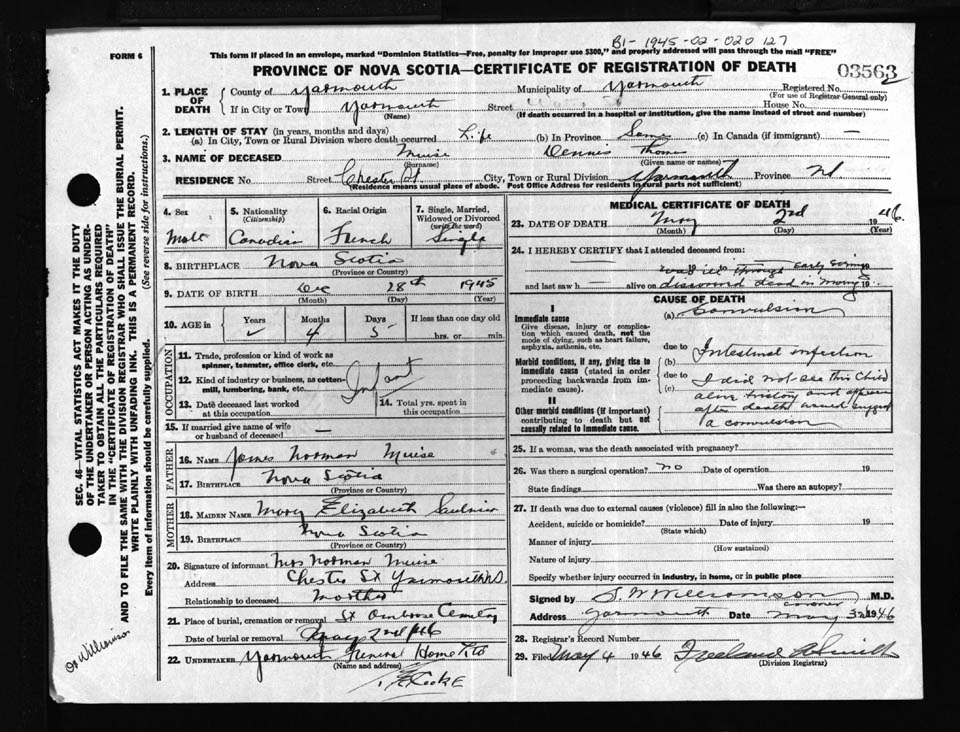 B1-1945-02-020127
FORM 6
This form if placed in an envelope, marked "Dominion Statistics—Free, penalty for improper use $300," and properly addressed will pass through the mail "FREE"
PROVINCE OF NOVA SCOTIA—CERTIFICATE OF REGISTRATION OF DEATH
03563
1. PLACE OF DEATH
County of Yarmouth Municipality of Yarmouth Registered No.
(For use of Registrar General only)
If in City or Town Yarmouth Street House No.
(Name) (If death occurred in a hospital or institution, give the name instead of street and number)
2. LENGTH OF STAY (in years, months and days)
(a) In City, Town or Rural Division where death occurred Life (b) In Province Same (c) In Canada (if immigrant) —
3. NAME OF DECEASED Muise Dennis Thomas
(Surname) (Given name or names)
RESIDENCE No. Street Chester St. City, Town or Rural Division Yarmouth Province NS
(Residence means usual place of abode. Post Office Address for residents in rural parts not sufficient)
4. Sex
Male
5. Nationality
(Citizenship)
Canadian
6. Racial Origin
French
7. Single, Married, Widowed or Divorced
(write the word)
Single
8. BIRTHPLACE Nova Scotia
(Province or Country)
9. DATE OF BIRTH Dec 28th 1945
(Month) (Day) (Year)
10. AGE in
Years Months Days If less than one day old
4 5 hrs. or min.
OCCUPATION
11. Trade, profession or kind of work as spinner, teamster, office clerk, etc.
12. Kind of industry or business, as cotton-mill, lumbering, bank, etc.
Infant
13. Date deceased last worked at this occupation
14. Total yrs. spent in this occupation
15. If married give name of wife or husband of deceased —
FATHER
16. NAME James Norman Muise
17. BIRTHPLACE Nova Scotia
(Province or Country)
MOTHER
18. MAIDEN NAME Mary Elizabeth Saulnier
19. BIRTHPLACE Nova Scotia
(Province or Country)
20. Signature of informant Mrs Norman Muise
Address Chester St Yarmouth N.S.
Relationship to deceased Mother
21. Place of burial, cremation or removal St Ambrose Cemetery
Date of burial or removal May 2nd/46
22. UNDERTAKER Yarmouth Funeral Home Ltd
(Name and address)
MEDICAL CERTIFICATE OF DEATH
23. DATE OF DEATH May 2nd 1946
(Month) (Day) (Year)
24. I HEREBY CERTIFY that I attended deceased from:
was ill through early evening
and last saw h alive on discovered dead in morng 19
CAUSE OF DEATH
I
Immediate cause
Give disease, injury or complication which caused death, not the mode of dying, such as heart failure, asphyxia, asthenia, etc.
(a) Convulsion
due to
Morbid conditions, if any, giving rise to immediate cause (stated in order proceeding backwards from immediate cause).
(b) Intestinal infection
due to
(c) I did not see this child
alive history and
after death would suggest
a convulsion
II
Other morbid conditions (if important) contributing to death but not causally related to immediate cause.
25. If a woman, was the death associated with pregnancy?
26. Was there a surgical operation? no Date of operation 19
State findings Was there an autopsy?
27. If death was due to external causes (violence) fill in also the following:—
Accident, suicide or homicide? Date of injury 19
(State which)
Manner of injury
(How sustained)
Nature of injury
Specify whether injury occurred in industry, in home, or in public place
Signed by S W Williamson M.D.
coroner
Address Yarmouth Date May 3rd 1946
28. Registrar's Record Number
29. Filed May 4 1946 Freeland Smith
(Division Registrar)
SEC. 46—VITAL STATISTICS ACT MAKES IT THE DUTY OF THE UNDERTAKER OR PERSON ACTING AS UNDERTAKER TO OBTAIN ALL THE PARTICULARS REQUIRED IN THE "CERTIFICATE OF REGISTRATION OF DEATH" AND TO FILE THE SAME WITH THE DIVISION REGISTRAR WHO SHALL ISSUE THE BURIAL PERMIT.
WRITE PLAINLY WITH UNFADING INK. THIS IS A PERMANENT RECORD.
Every item of information should be carefully supplied. (See reverse side for instructions.)
Dr Williamson